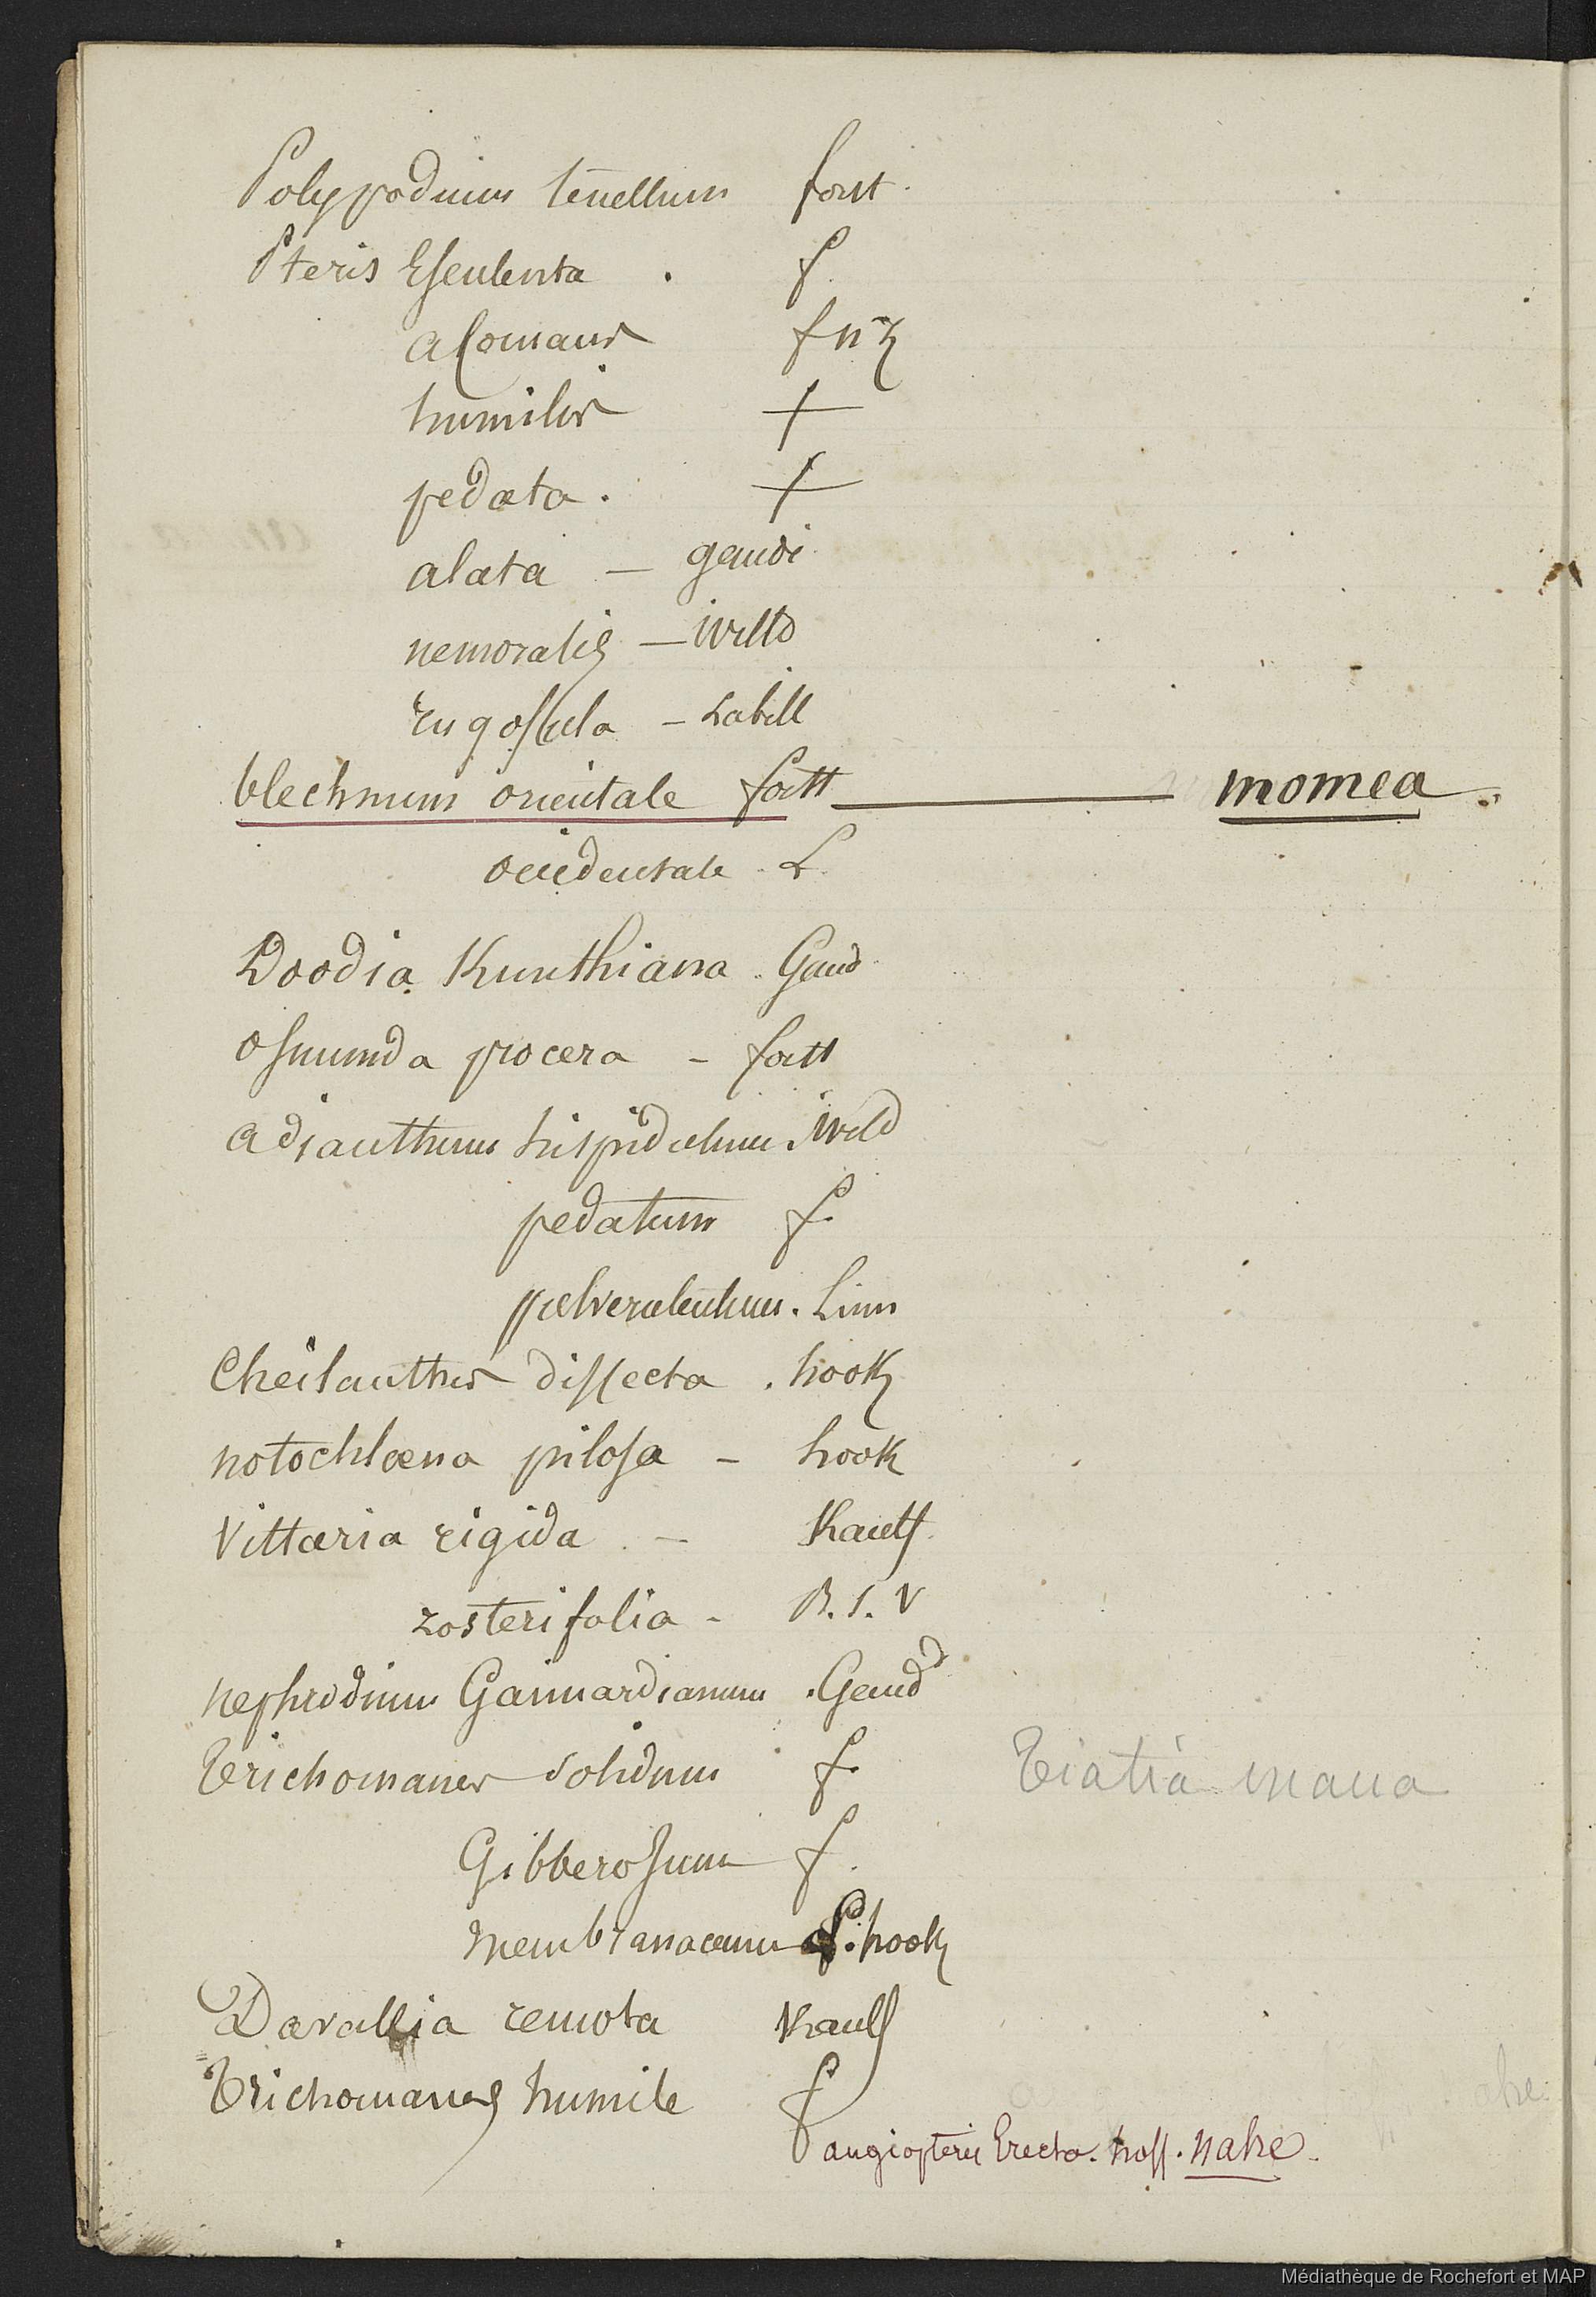 Polypodium tenellum forst.
Pteris Esculenta . f.
a Comans f nz
humilis f
pedata . f
alata — gaudi
nemoralis — Willd
rugosula — Labill
blechnum orientale forst — momea
occidentale . L.
Doodia Kunthiana . Gaud.
osmunda procera — forst
adianthum hispidulum . Willd
pedatum f.
pulverulentum . Linn
Cheilanthes dissecta . hook
notochlæna pilosa — hook
Vittaria rigida . — Kaulf
zosterifolia — B. S. V
nephrodium Gaimardianum . Gaud
Trichomanes solidum f. Tiatia maua
Gibberosum f.
membranaceum . hook
Davallia remota Kaulf
Trichomanes humile f
angiopteris Erecta . hoff . nahe.
Médiathèque de Rochefort et MAP